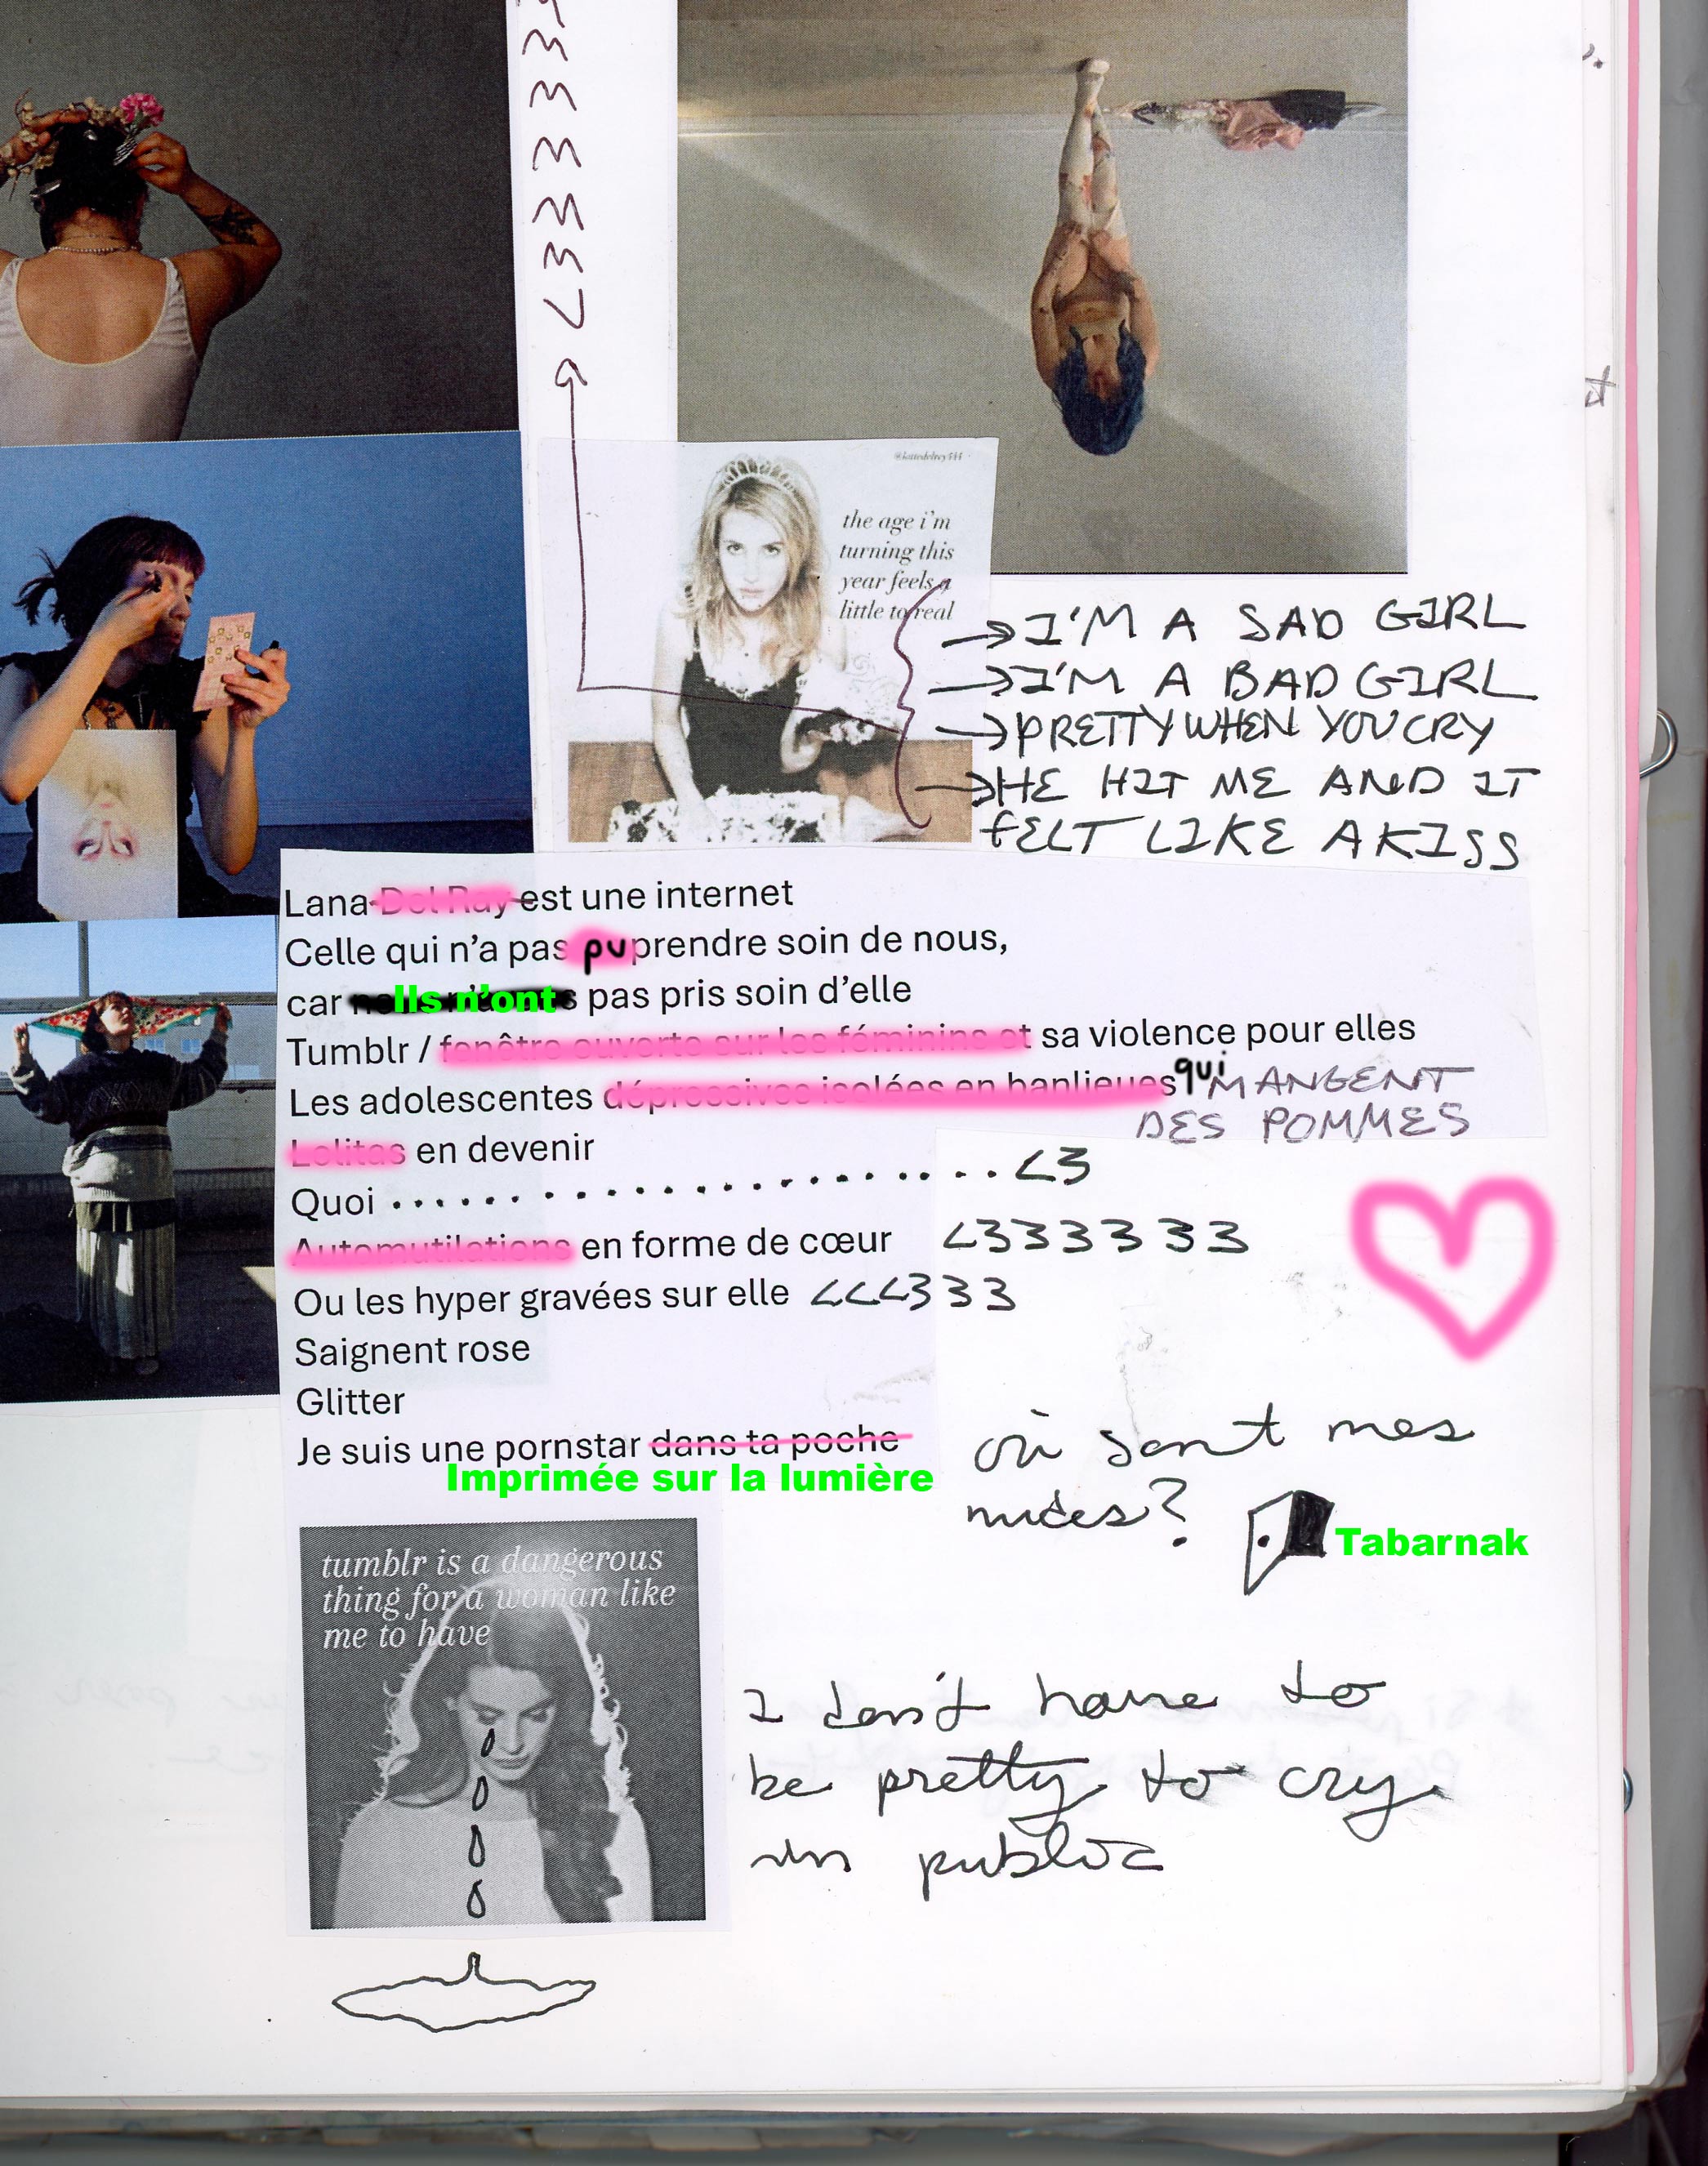 <333333
@lottedelrey444
the age i'm
turning this
year feels a
little to real
→I'M A SAD GIRL
→I'M A BAD GIRL
→PRETTY WHEN YOU CRY
→HE HIT ME AND IT
FELT LIKE A KISS
Lana Del Ray est une internet
Celle qui n'a pas pu prendre soin de nous,
car Ils n'ont pas pris soin d'elle
Tumblr / fenêtre ouverte sur les féminins et sa violence pour elles
Les adolescentes dépressives isolées en banlieues qui MANGENT
DES POMMES
Lolitas en devenir
Quoi ..................... <3
Automutilations en forme de cœur <333333
Ou les hyper gravées sur elle <<<333
Saignent rose
Glitter
Je suis une pornstar dans ta poche
Imprimée sur la lumière
où sont mes
nudes?
Tabarnak
tumblr is a dangerous
thing for a woman like
me to have
I don't have to
be pretty to cry
in public